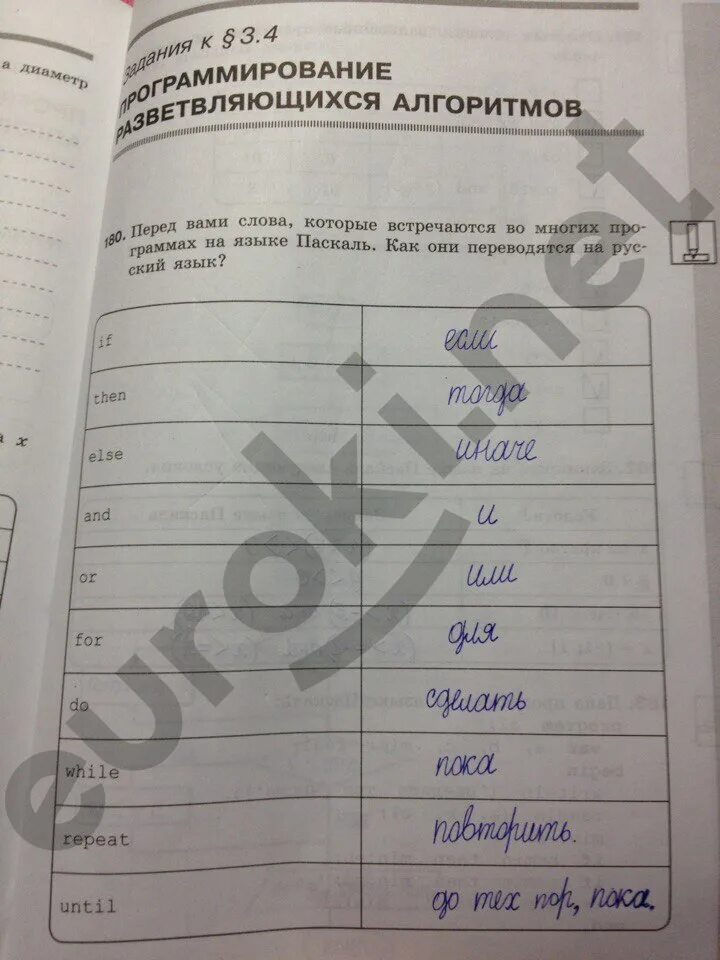 а диаметр
Задания к § 3.4
ПРОГРАММИРОВАНИЕ
РАЗВЕТВЛЯЮЩИХСЯ АЛГОРИТМОВ
180. Перед вами слова, которые встречаются во многих про-
граммах на языке Паскаль. Как они переводятся на рус-
ский язык?
if если
then тогда
else иначе
а x
and и
or или
for для
do сделать
while пока
repeat повторить.
until до тех пор, пока.
euroki.net